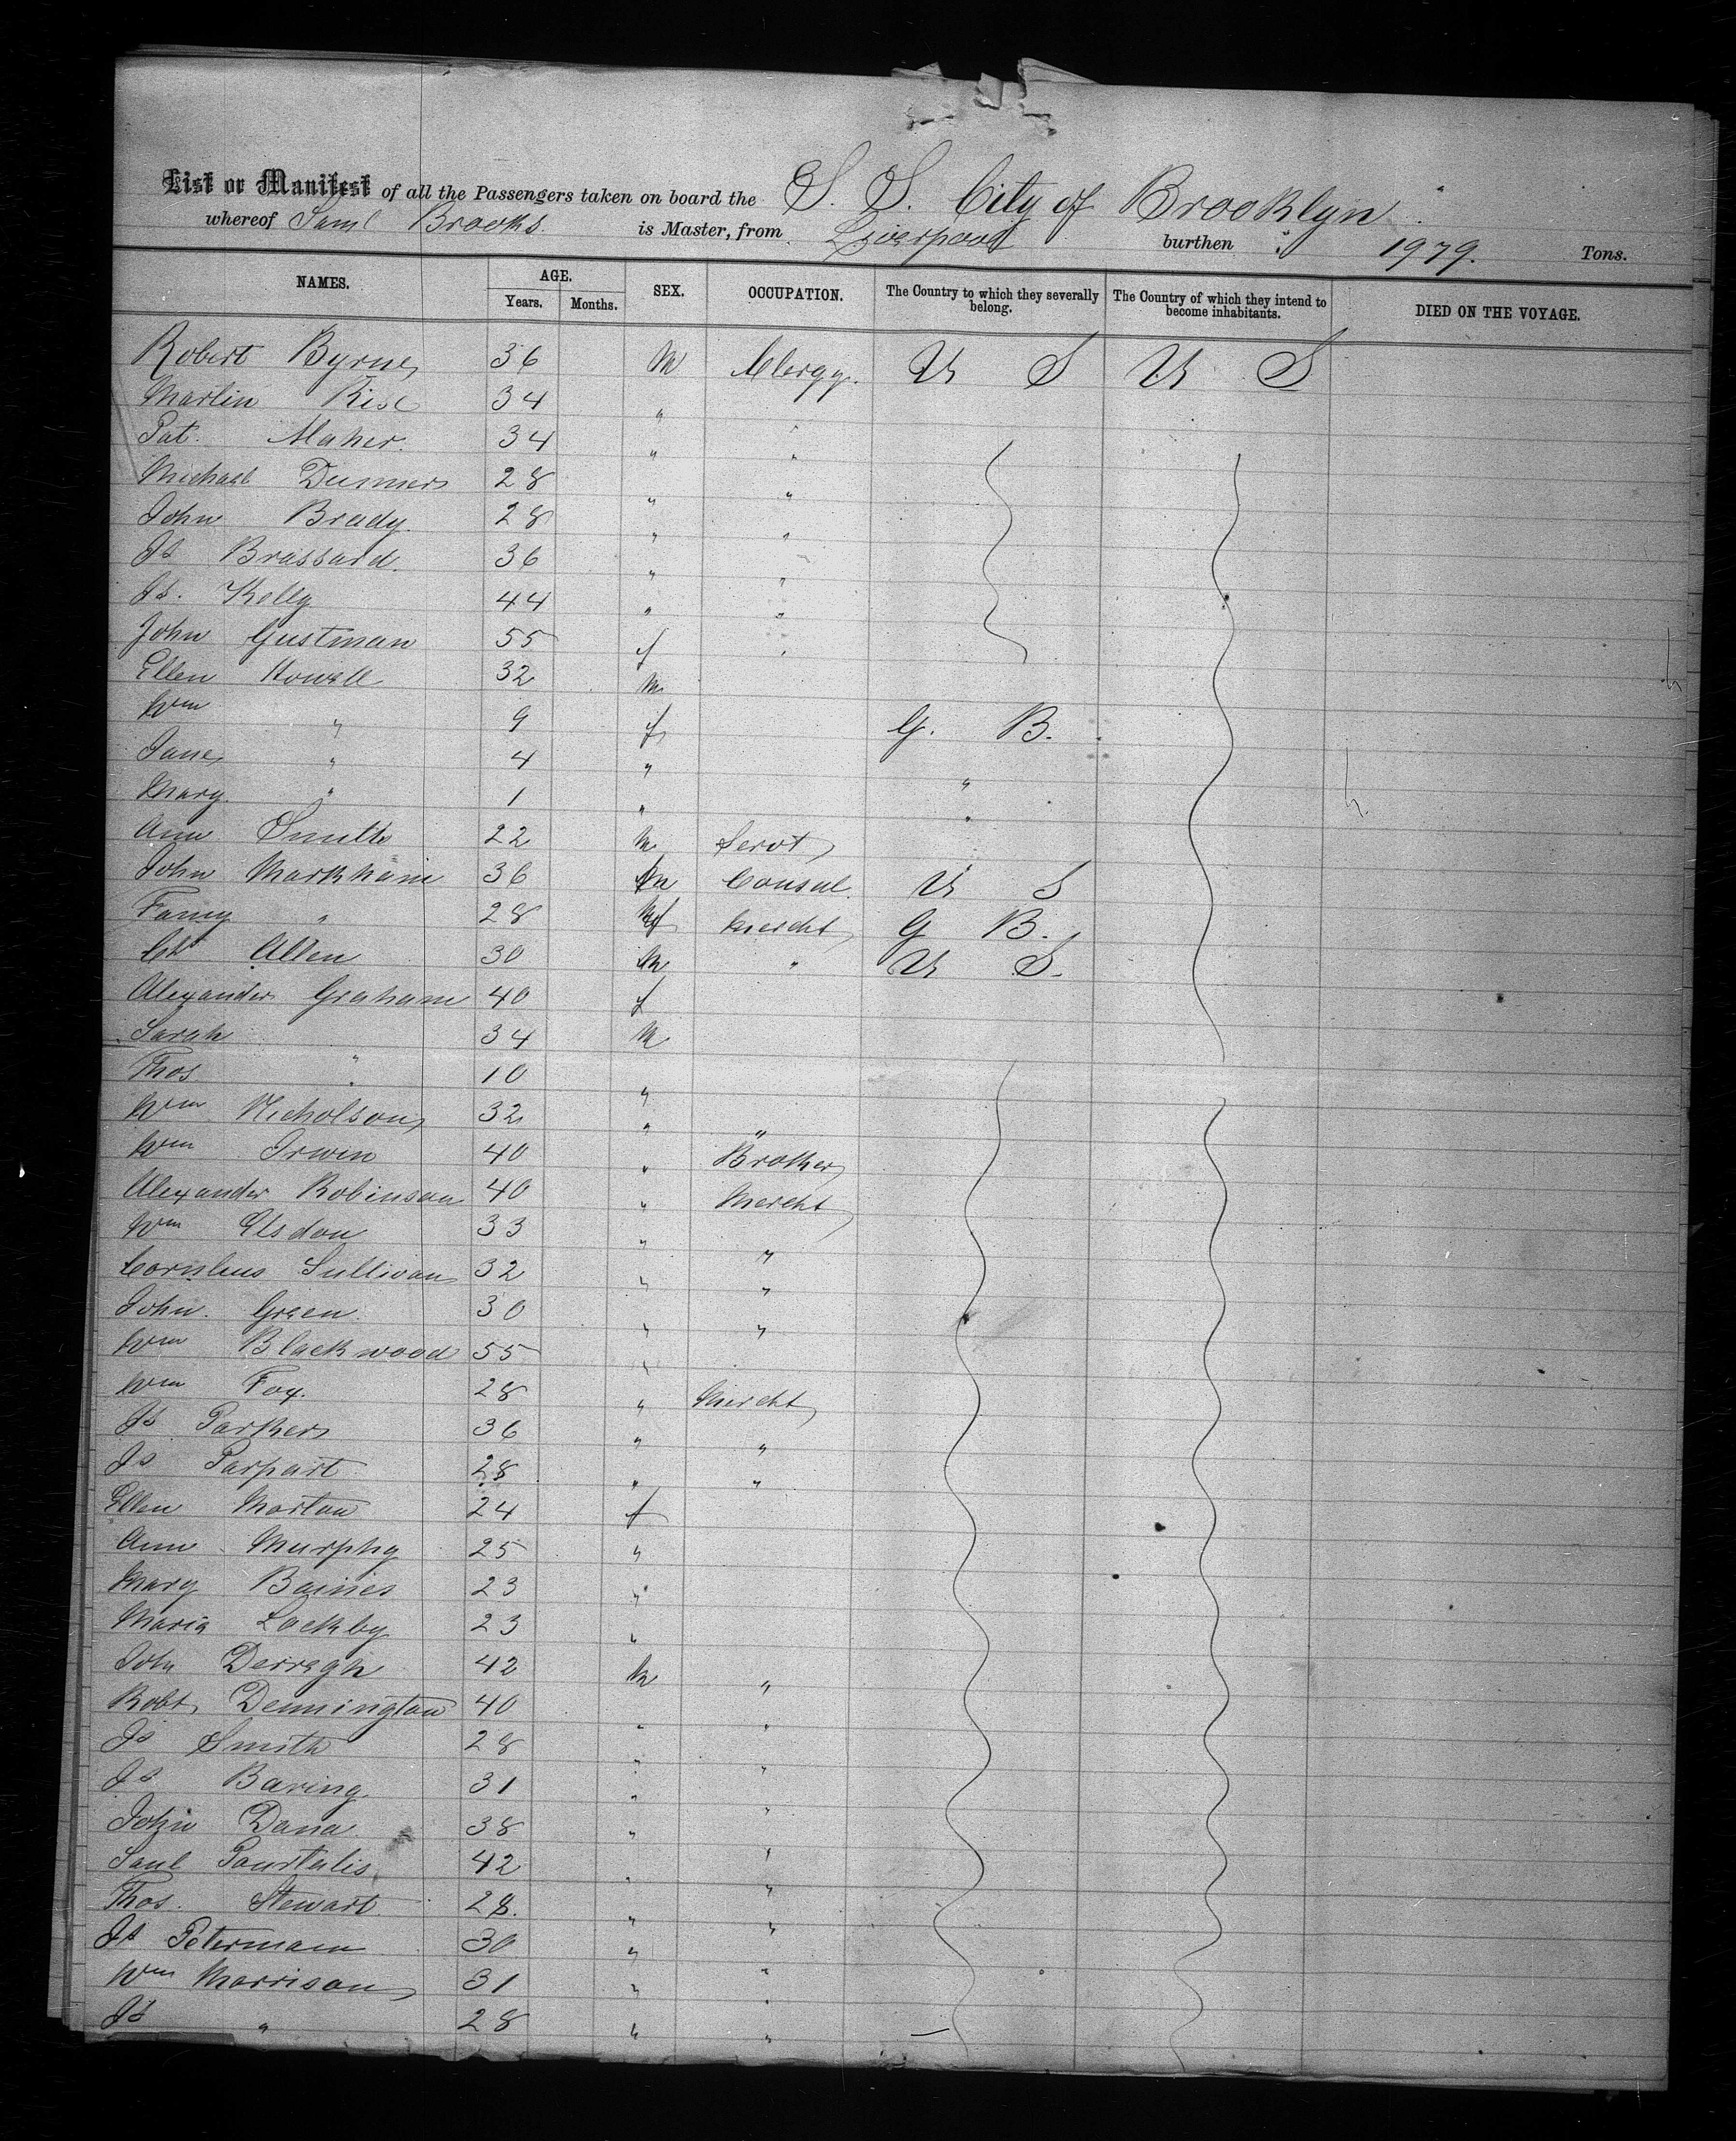 List or Manifest of all the Passengers taken on board the S. S. City of Brooklyn
whereof Saml Brooks is Master, from Liverpool burthen 1979. Tons.
NAMES. AGE. Years. Months. SEX. OCCUPATION. The Country to which they severally belong. The Country of which they intend to become inhabitants. DIED ON THE VOYAGE.
Robert Byrne 36 m Clergy. U S U S
Martin Rise 34 "
Pat. Maher. 34 " "
Michael 28 " "
John Brady 28 " "
Js Brassard. 36 " "
Js. Kelly 44 " "
John Gustman 55 f "
Ellen Howell 32 m
Wm " 9 f G. B.
Jane " 4 " "
Mary " 1 " "
Ann Smith 22 m Servt
John Markham 36 m Consul U S
Fanny " 28 f Mercht G B.
Ch Allen 30 m " U S.
Alexander Graham 40 f
Sarah 34 m
Thos " 10 "
Wm Nicholson 32 " "
Wm Irwin 40 " Brother
Alexander Robinson 40 " Mercht
Wm Elsdon 33 " "
Cornleus Sullivan 32 " "
John. Green. 30 " "
Wm Blackwood 55 "
Wm Fox. 28 " Mercht
Js Parker 36 " "
Js Parpart 28 " "
Ellen Morton 24 f
Ann Murphy 25 "
Mary Baines 23 "
Maria Lackby 23 "
John Derragh 42 m "
Robt Dennington 40 " "
Js Smith 28 " "
Js Baring. 31 " "
John Dana 38 " "
Saml Pourtalis 42 " "
Thos. Stewart 28. " "
Js Petermann 30 " "
Wm Morrison 31 " "
Js " 28 " "